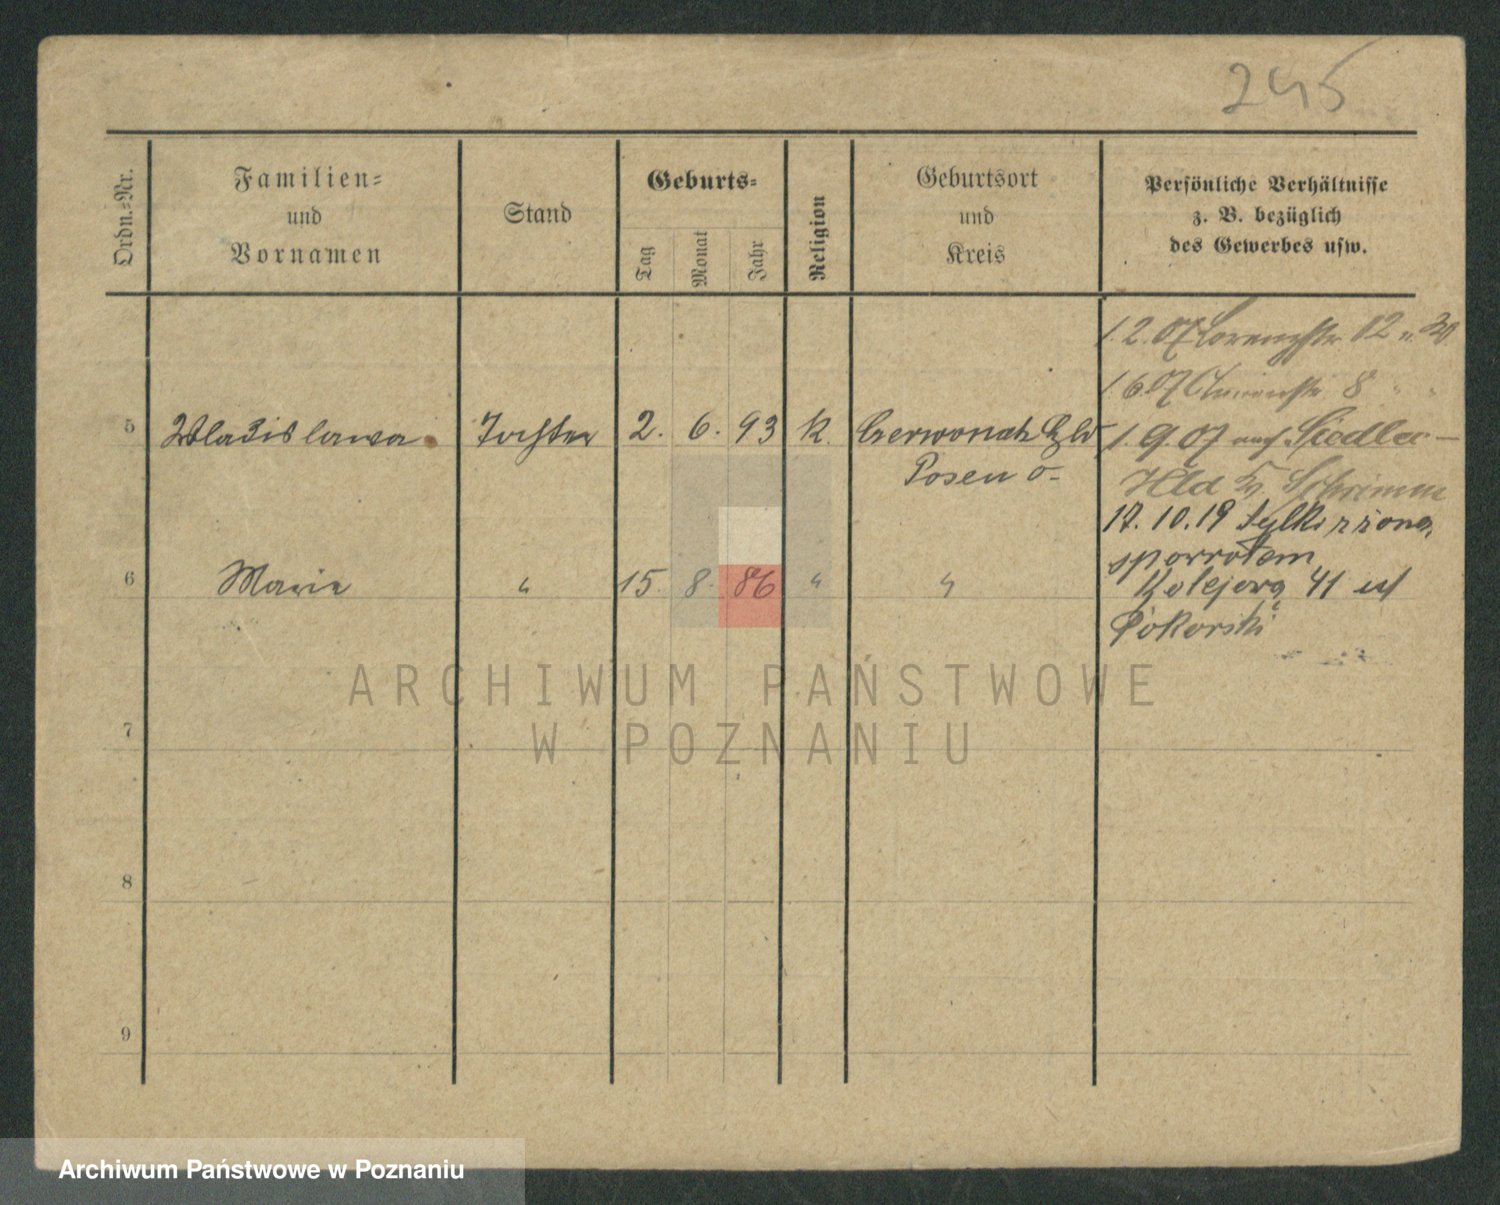 245
Ordn.=Nr.
Familien=
und
Vornamen
Stand
Geburts=
Tag
Monat
Jahr
Religion
Geburtsort
und
Kreis
Persönliche Verhältnisse
z. B. bezüglich
des Gewerbes usw.
1.2.07 Lorenzstr 12
1.6.07 8 " "
5 Wladislawa Tochter 2. 6. 93 K. Czerwonak 1.9.07 auf Siedlec-
Posen O- Hld Kr. Schrimm
17.10.19 tylko z żoną
spowrotem
6 Marie " 15. 8. 86 " " Kolejowa 41 u/
Pokorski
7
8
9
ARCHIWUM PAŃSTWOWE
W POZNANIU
Archiwum Państwowe w Poznaniu